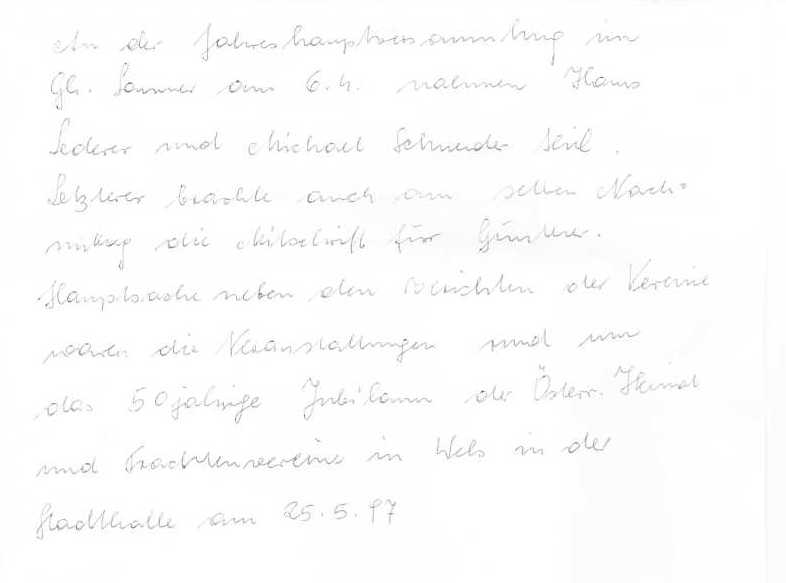 An der Jahreshauptversammlung im
Gh. Sammer am 6.4. nahmen Hans
Lederer und Michael Schneider teil.
Letzterer brachte auch am selben Nach=
mittag die Mitschrift für Günther.
Hauptsache neben den Berichten der Vereine
waren die Veranstaltungen rund um
das 50 jährige Jubiläum der Österr. Heimat
und Trachtenvereine in Wels in der
Stadthalle am 25.5.97